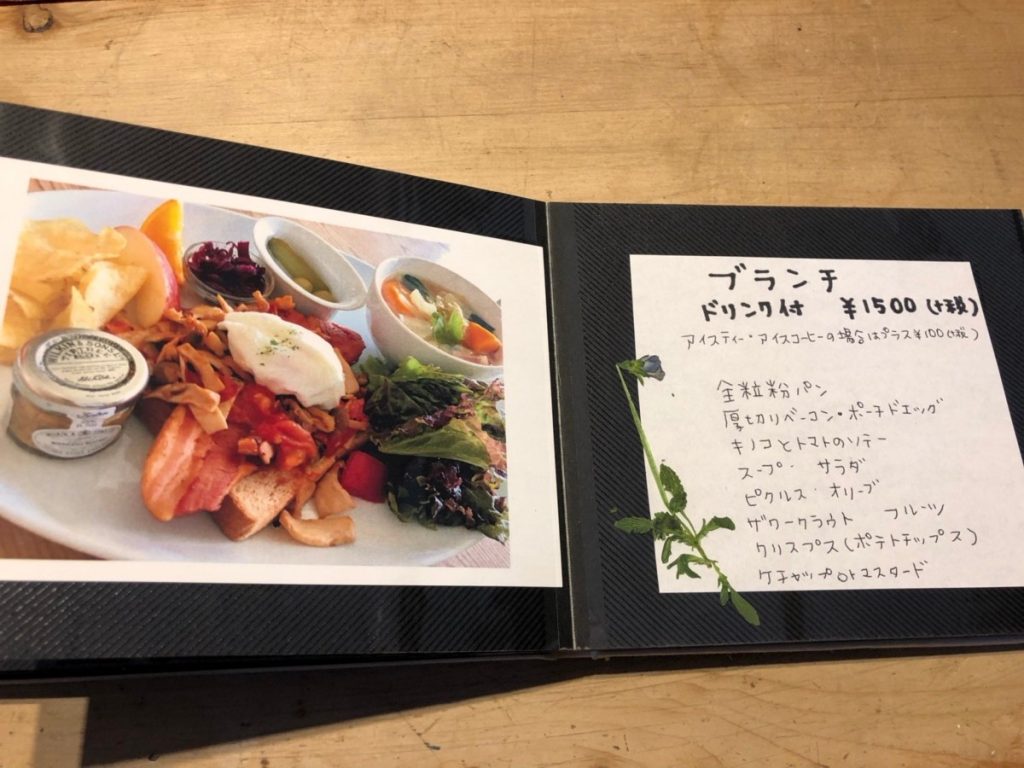 WILKIN & SONS LTD
ブランチ
ドリンク付 ¥1500(+税)
アイスティー・アイスコーヒーの場合はプラス¥100(+税)
全粒粉パン
厚切りベーコン・ポーチドエッグ
キノコとトマトのソテー
スープ・サラダ
ピクルス・オリーブ
ザワークラウト フルーツ
クリスプス(ポテトチップス)
ケチャップorマスタード